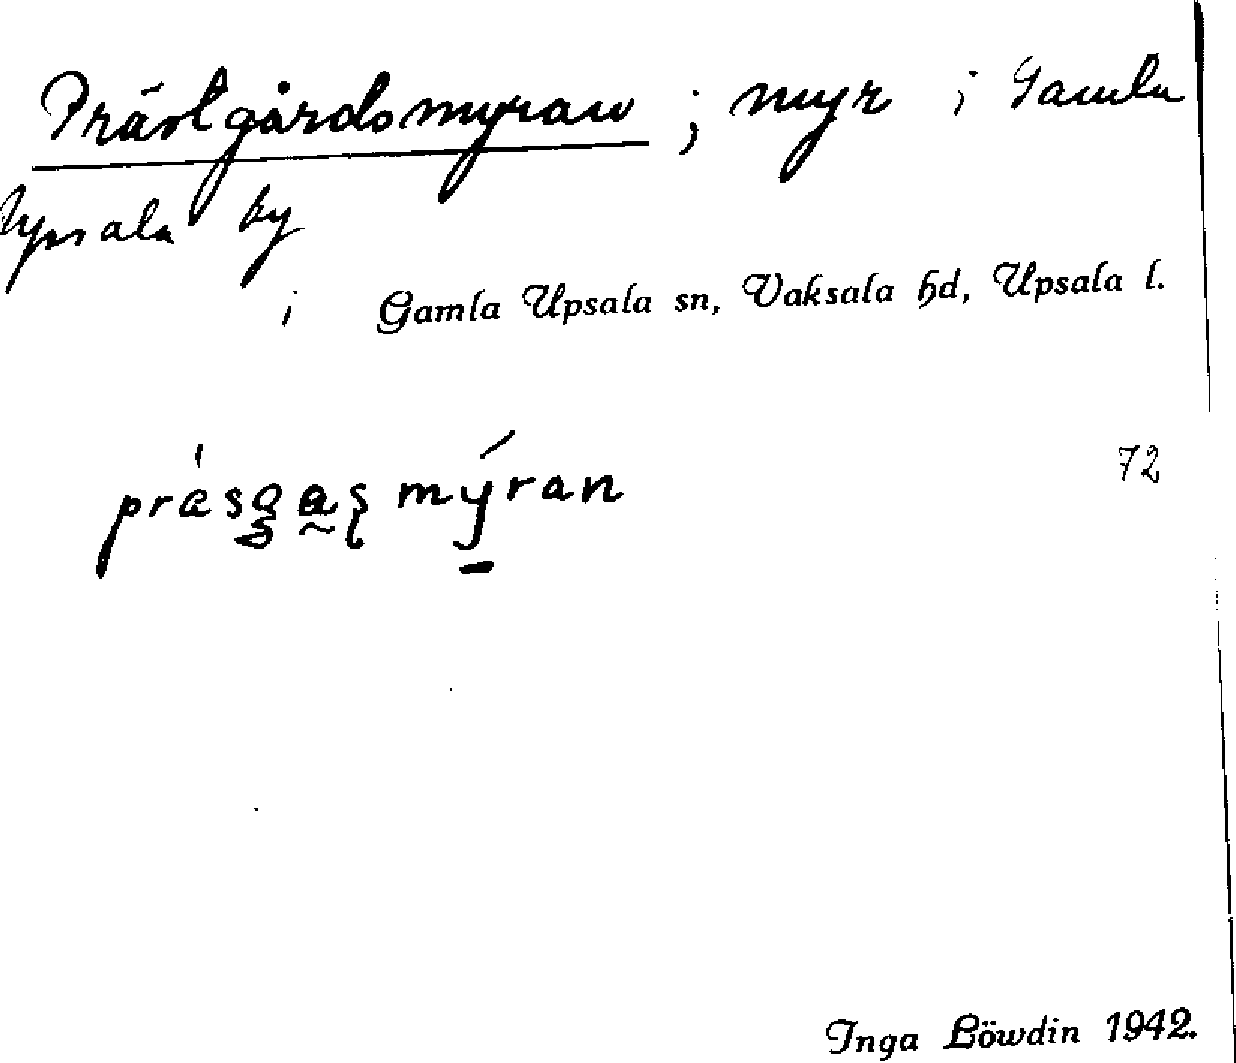 Prästgårdsmyran ; myr i Gamla
Upsala by
i Gamla Upsala sn, Vaksala hd, Upsala l.
72
Inga Löwdin 1942.